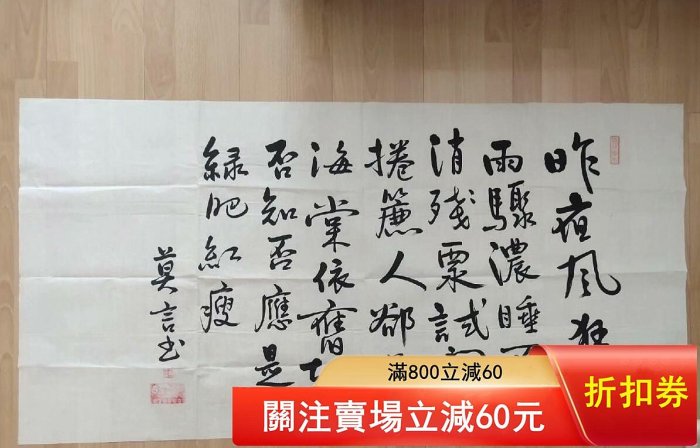 昨夜风狂
雨驟濃睡不
消残試詞
捲簾人郤
海棠依舊知
否知否應是
緑肥紅瘦
莫言书
滿800立減60
關注賣場立減60元
折扣券